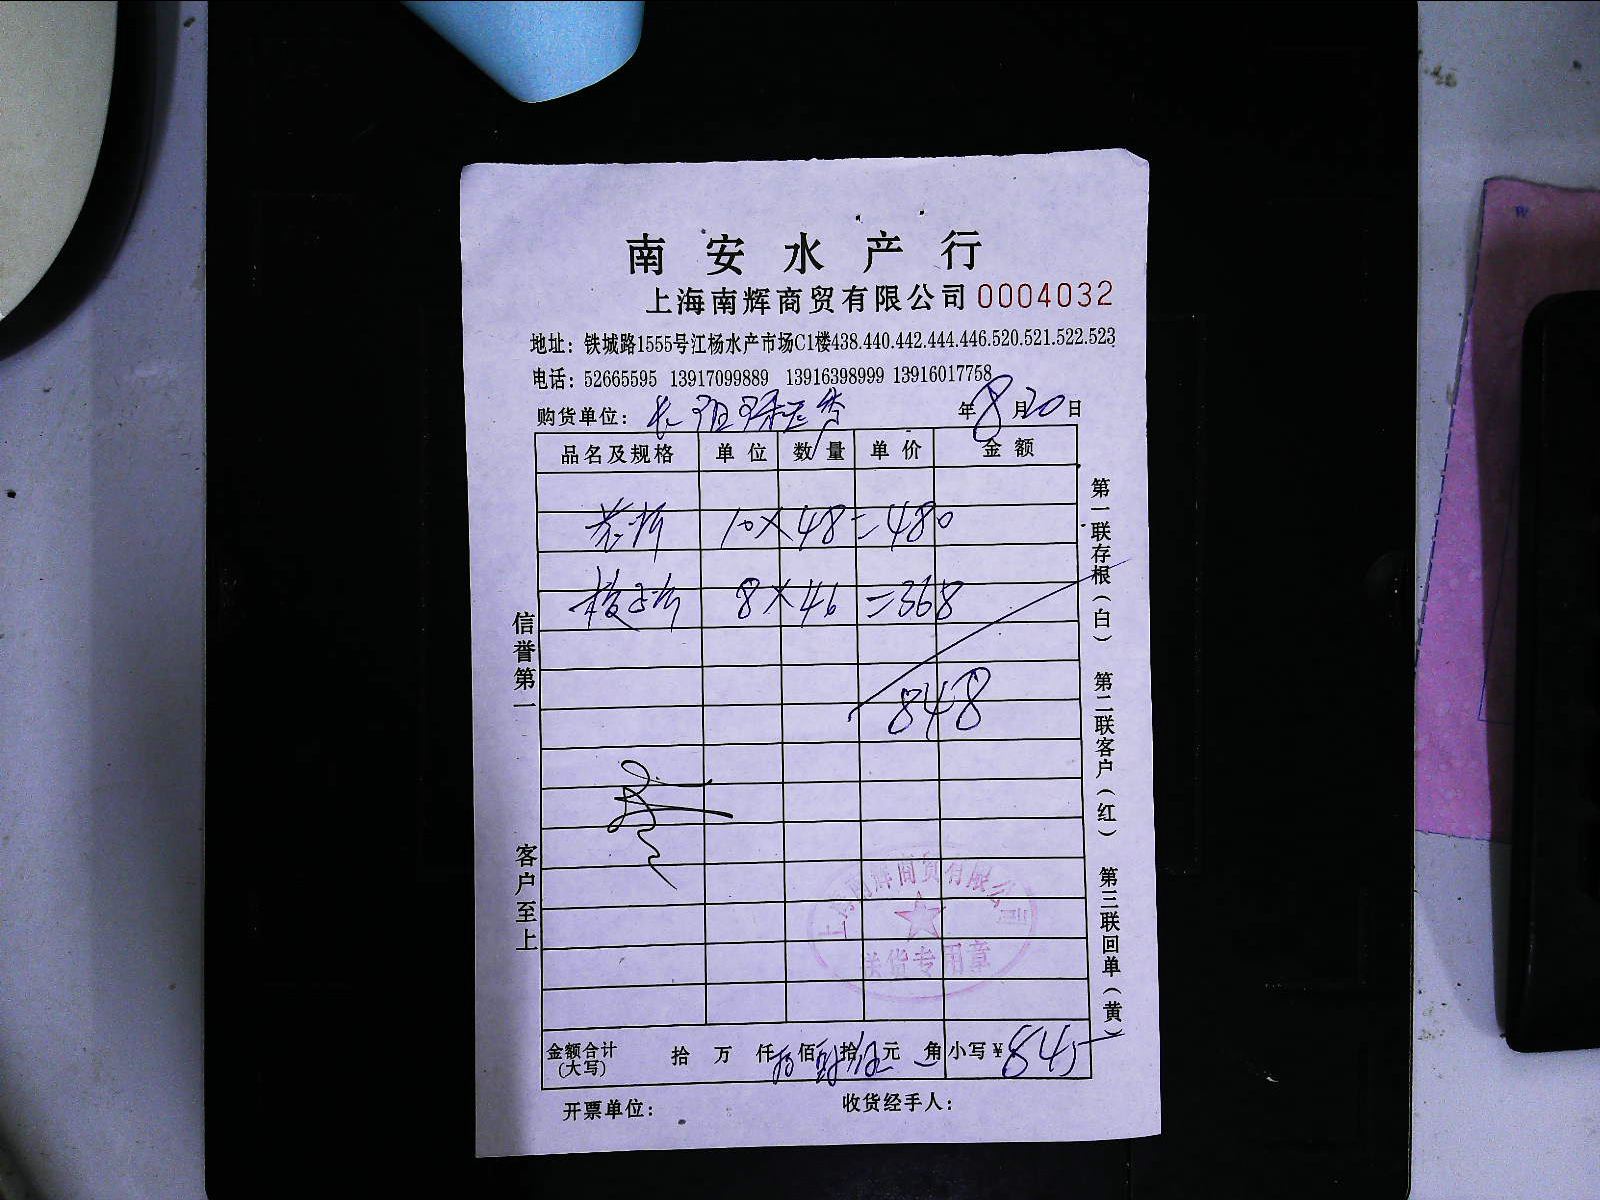 南安水产行
上海南辉商贸有限公司 0004032
地址：铁城路1555号江杨水产市场C1楼438.440.442.444.446.520.521.522.523
电话：52665595 13917099889 13916398999 13916017758
购货单位： 年8月20日
品名及规格 单位 数量 单价 金额
10×48=480
8×46=368
848
信誉第一 客户至上
第一联存根（白） 第二联客户（红） 第三联回单（黄）
上海南辉商贸有限公司
送货专用章
金额合计（大写） 拾 万 仟 佰 拾 元 角 小写¥845
开票单位： 收货经手人：